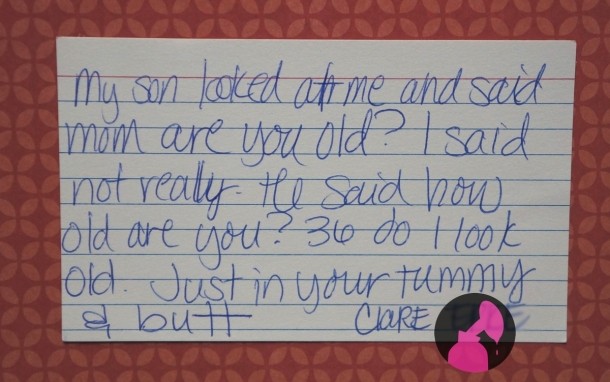 My son looked at me and said
mom are you old? I said
not really. He said how
old are you? 36 do I look
old. Just in your tummy
& butt Clare